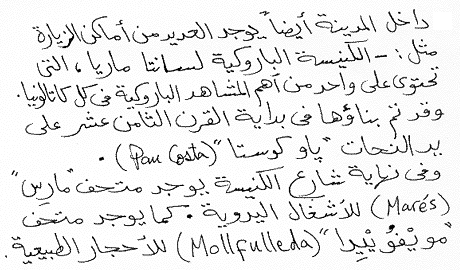 داخل المدينة أيضاً يوجد العديد من أماكن الزيارة
مثل: - الكنيسة الباروكية لسانتا ماريا، التى
تحتوى على واحد من أهم المشاهد الباروكية فى كل كاتالونيا.
وقد تم بناؤها فى بداية القرن الثامن عشر على
يد النحات "پاو كوستا" (Pau Costa).
وفى نهاية شارع الكنيسة يوجد متحف "مارِس"
(Marés) للأشغال اليدوية. كما يوجد متحف
"مويْفُويْيِدا" (Mollfulleda) للأحجار الطبيعية.